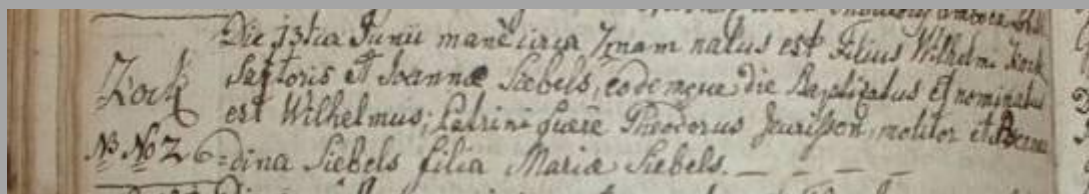 Die 13tia Junii mane circa 7mam natus est Filius Wilhelmi Kock
Kock Sartoris et Joannæ Siebels, eodemque die Baptizatus et nominatus
est Wilhelmus; Patrini fuere Theodorus Jeurisson, molitor et Bernar
No No 26 =dina Siebels filia Mariæ Siebels. _ _ _ _